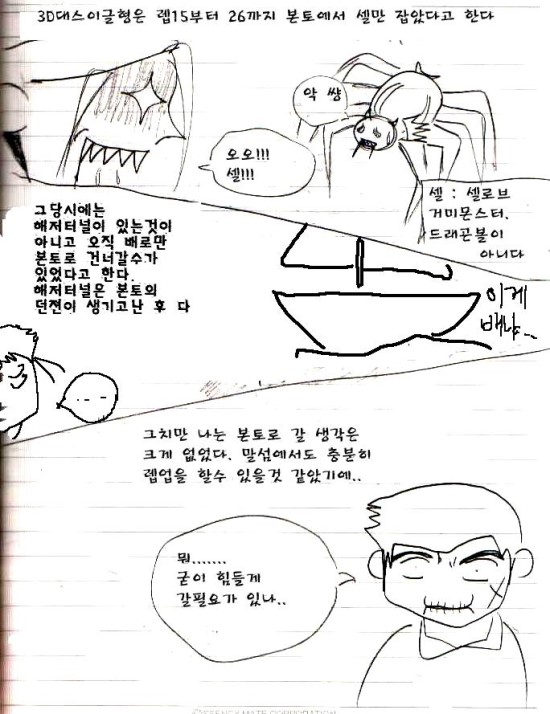 3D대스이글형은 렙15부터 26까지 본토에서 셀만 잡았다고 한다
악 썅
오오!!!
셀!!!
셀 : 셀로브
거미몬스터.
드래곤볼이
아니다
그당시에는
해저터널이 있는것이
아니고 오직 배로만
본토로 건너갈수가
있었다고 한다.
해저터널은 본토의
던젼이 생기고난 후 다
이게
배냐...
...
그치만 나는 본토로 갈 생각은
크게 없었다. 말섬에서도 충분히
렙업을 할수 있을것 같았기에..
뭐.......
굳이 힘들게
갈필요가 있나..